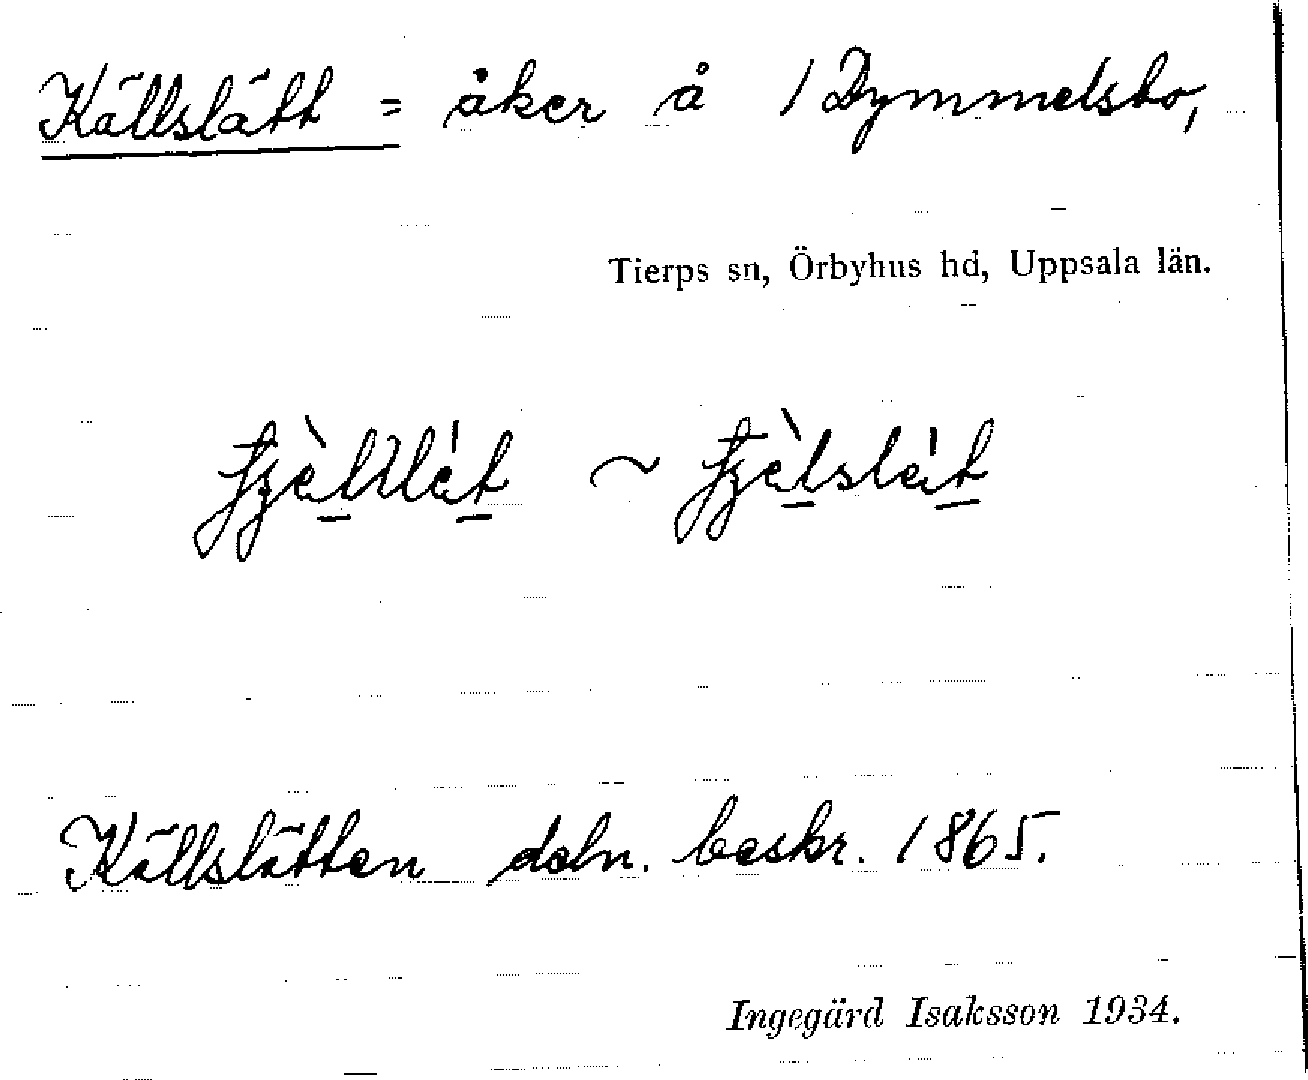 Källslätt = åker å 1 Dymmelsbo,
Tierps sn, Örbyhus hd, Uppsala län.
~
Källslätten deln. beskr. 1865.
Ingegärd Isaksson 1934.